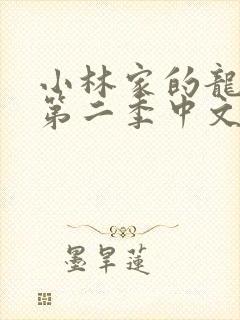 小林家的龍
第二季中文
墨旱蓮